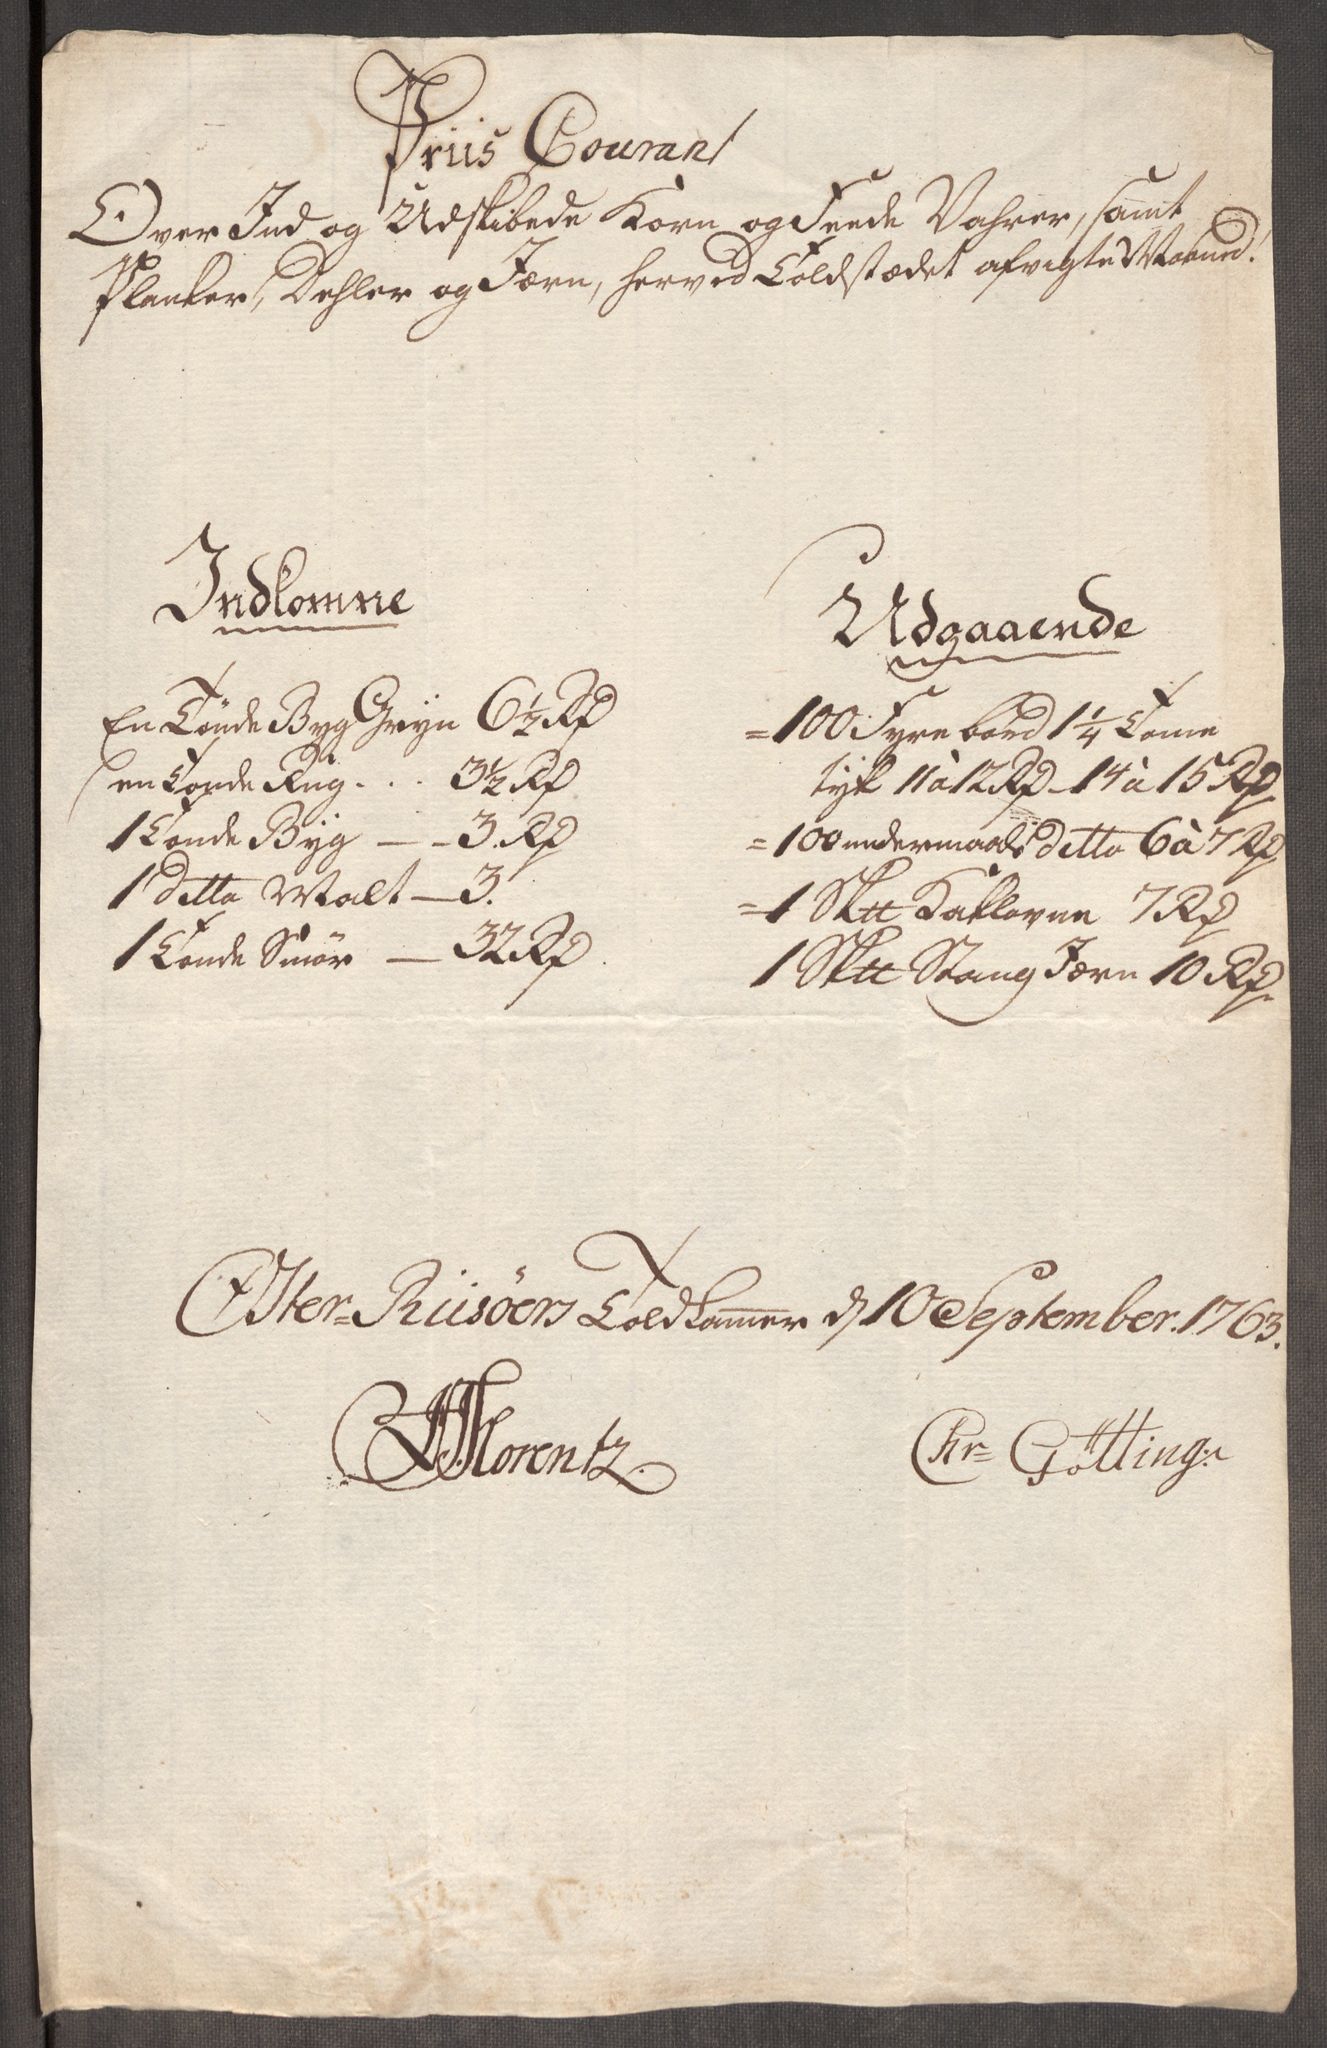 Priis Courant
Over Ind og Udskibede Korn og Feede Vahrer, samt
Planker, Dehler og Jærn, herved Toldstædet afvigte Maaned.
Indkomne
En Tønde Byg Gryn 6½ Rd
en Tønde Rug . . 3½ Rd
1 Tønde Byg — 3. Rd
1 ditto Malt — 3.
1 Tønde Smör — 32 Rd.
Udgaaende
= 100 Fyre bord 1¼ Tome
tyk 11 à 12 Rd - 14 à 15 Rd
= 100 undermaals ditto 6 à 7 Rd
= 1 Sk℔ Kaklovne 7 Rd
1 Sk℔ Stang Jærn 10 Rd.
Øster-Riisöers Toldkammer d 10 September. 1763.
Florentz.
Chr= Götting.